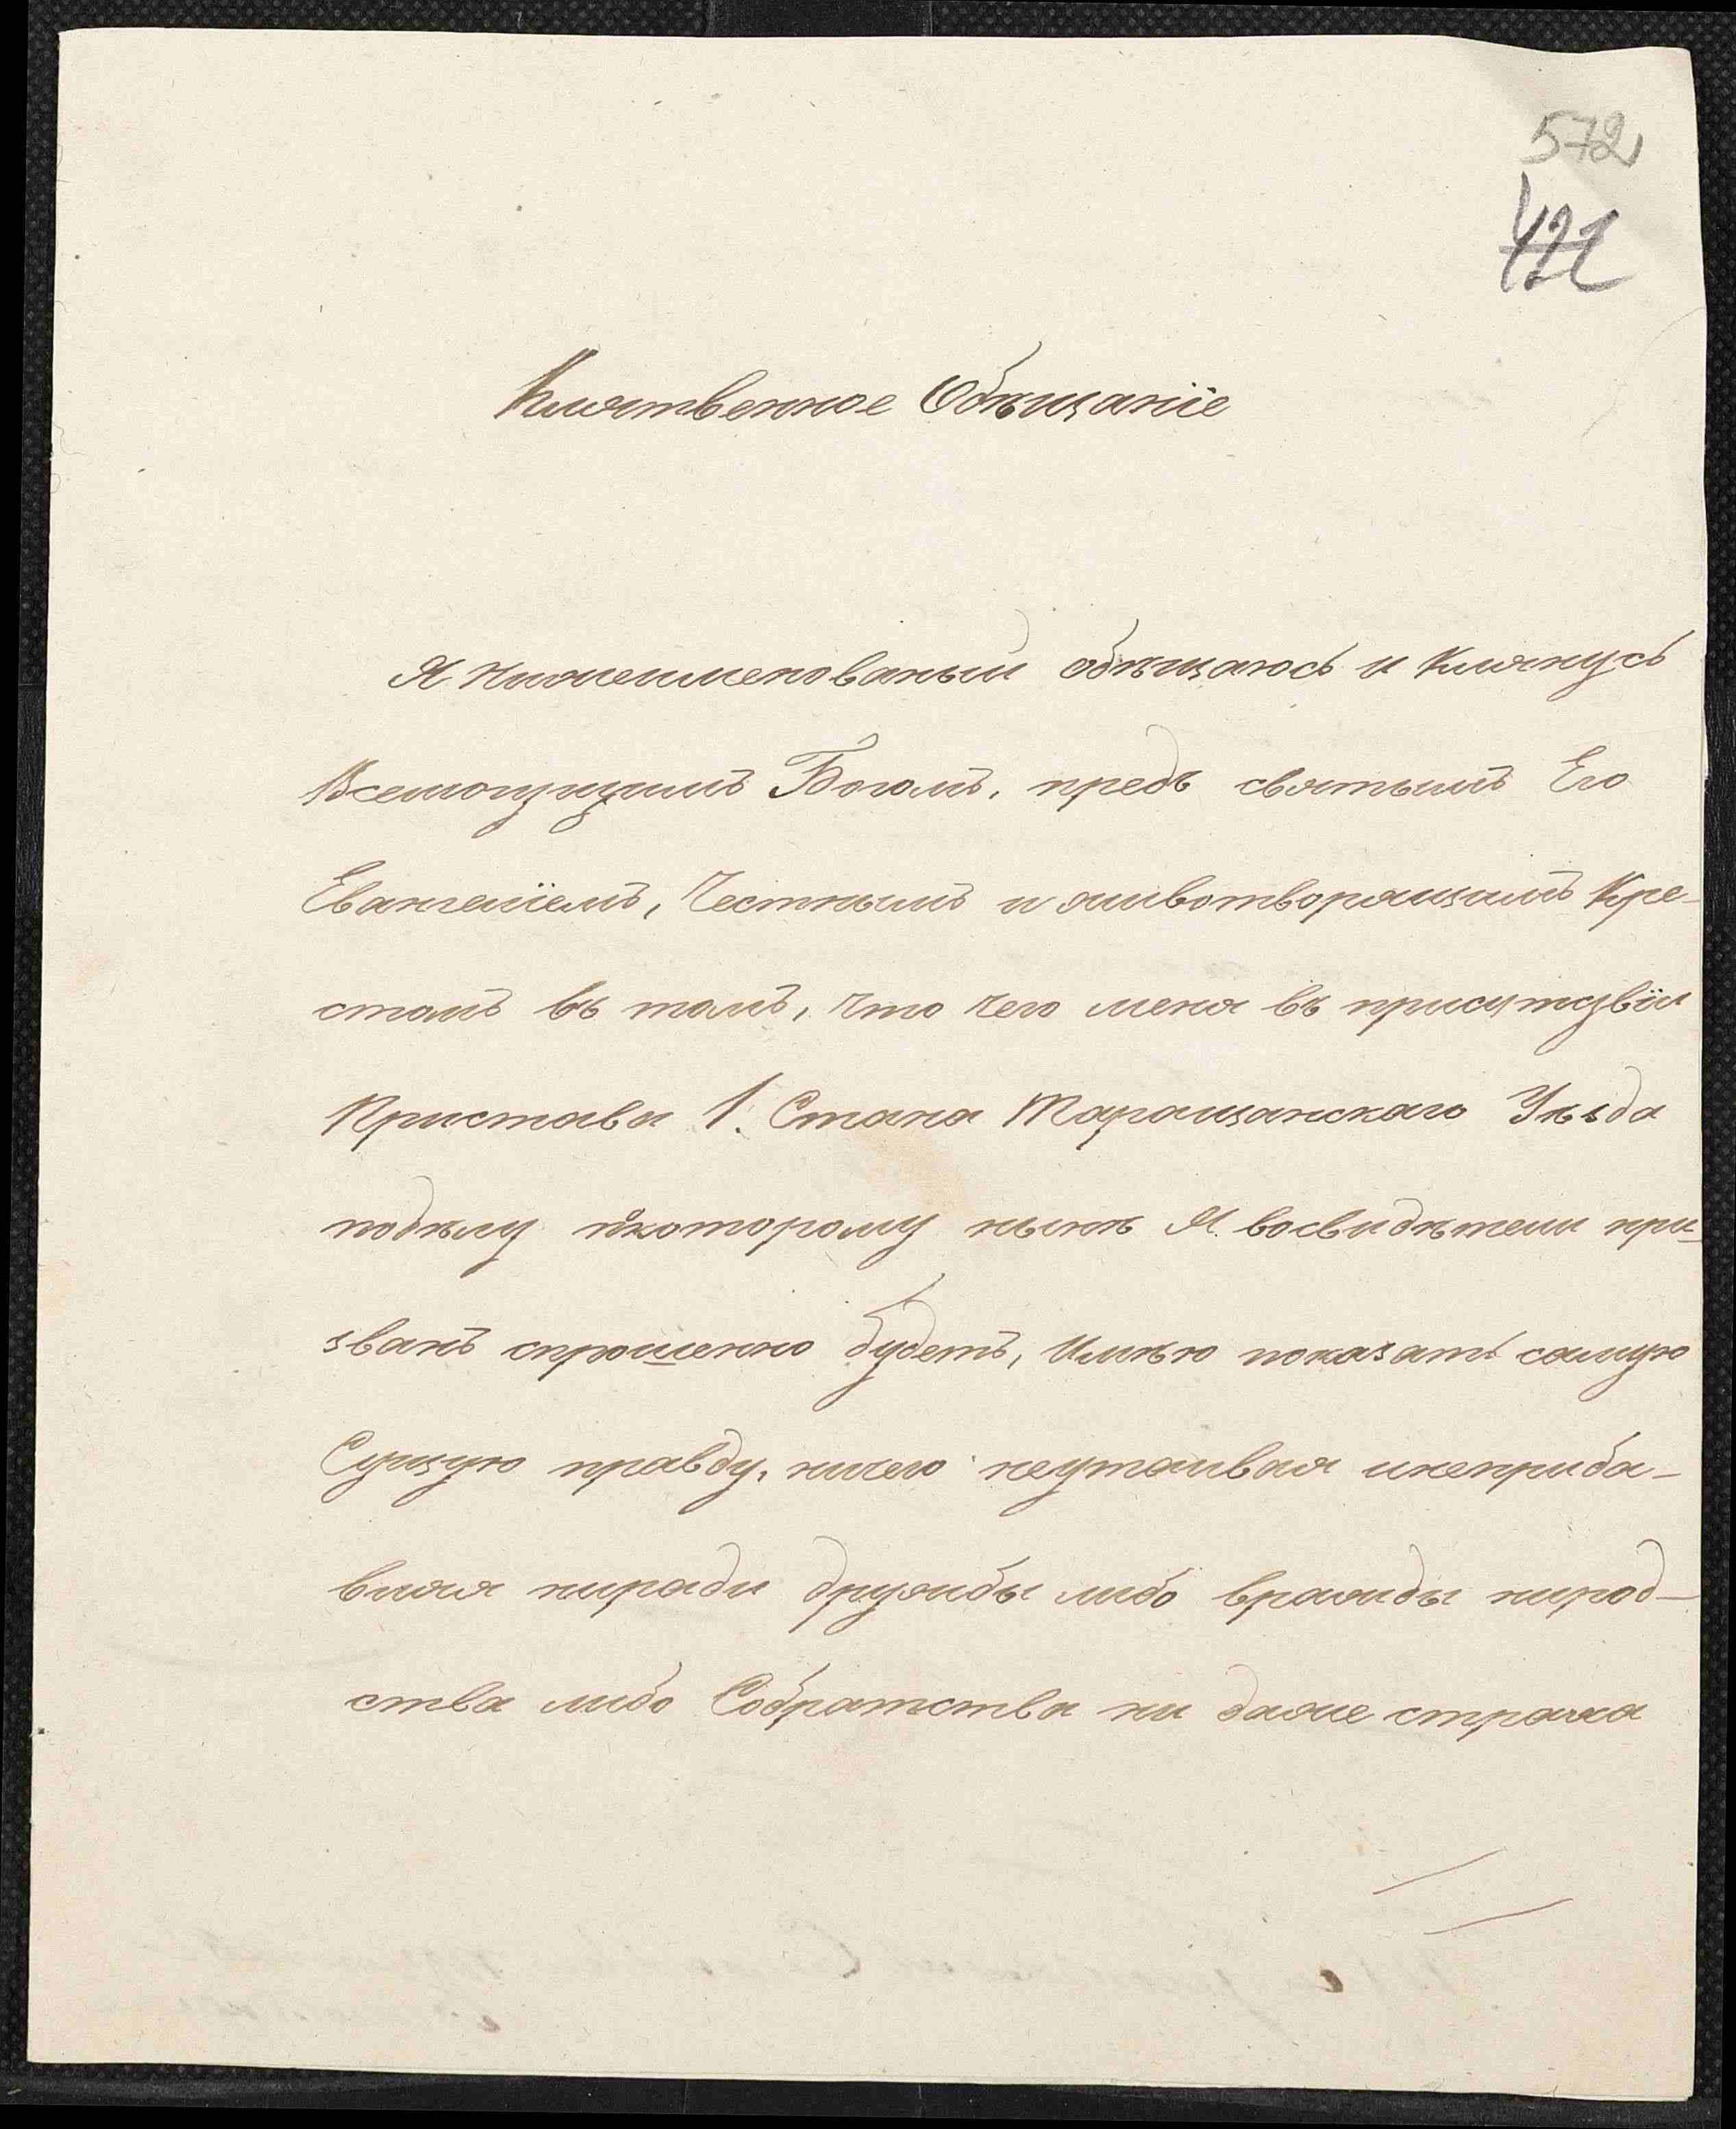 572
422
Клятвенное Обѣщаніе
Я нижеименованый обѣщаюсь и клянусь
Всемогущимъ Богомъ, предъ святымъ Его
Евангеліемъ, Честнымъ и животворящимъ Кре-
стомъ въ томъ, что чего меня въ присутзвіи
Пристава 1. Стана Таращанскаго Уѣзда
подѣлу покоторому нынѣ Я восвидѣтели при-
званъ спрошенно будетъ, Имѣю показать самую
Сущую правду, ничего неутаивая инеприба-
вляя ниради дружбы либо вражды нирод-
ства либо Собратства ни даже страха